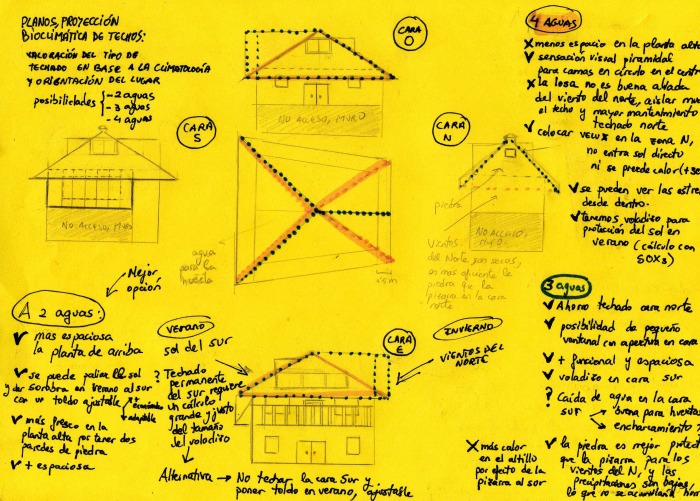 PLANOS, PROYECCIÓN
BIOCLIMÁTICA DE TECHOS:
VALORACIÓN DEL TIPO DE
TECHADO EN BASE A LA CLIMATOLOGÍA
Y ORIENTACIÓN DEL LUGAR
posibilidades
- 2 aguas
- 3 aguas
- 4 aguas
CARA
O
NO ACCESO, MURO
CARA
S
NO ACCESO, MURO
CARA
N
piedra
NO ACCESO,
MURO
agua
para la
huerta
Vientos
del Norte son secos,
es más eficiente la
piedra que la
pizarra en la cara
norte
Mejor
opción
A 2 aguas:
✓ mas espaciosa
la planta de arriba
✓ se puede paliar el sol
y dar sombra en verano al sur
con un toldo ajustable
+ económico
+ adaptable
✓ más fresco en la
planta alta por tener dos
paredes de piedra
✓ + espaciosa
VERANO
sol del sur
? Techado
permanente
del sur requiere
un cálculo
grande y justo
del tamaño
del voladizo
Alternativa → No techar la cara Sur y
poner toldo en verano, ajustable
CARA
E
INVIERNO
VIENTOS DEL
NORTE
X más calor
en el altillo
por efecto de la
pizarra al sur
4 AGUAS
X menos espacio en la planta alta
✓ sensación visual piramidal
para camas en círculo en el centro
X la losa no es buena aliada
del viento del norte, aislar
el techo y mayor mantenimiento
techado norte
✓ colocar VELUX en la zona N,
no entra sol directo
ni se pierde calor
✓ se pueden ver las
desde dentro.
✓ tenemos voladizo para
protección del sol en
verano (cálculo con
3 aguas
✓ Ahorro techado cara norte
✓ posibilidad de pequeño
ventanal con apertura en cara
✓ + funcional y espaciosa
✓ voladizo en cara sur
? Caída de agua en la cara
sur
buena para huerta
encharcamiento?
✓ la piedra es mejor
que la pizarra para los
vientos del N, y las
precipitaciones son bajas,
lo que no se